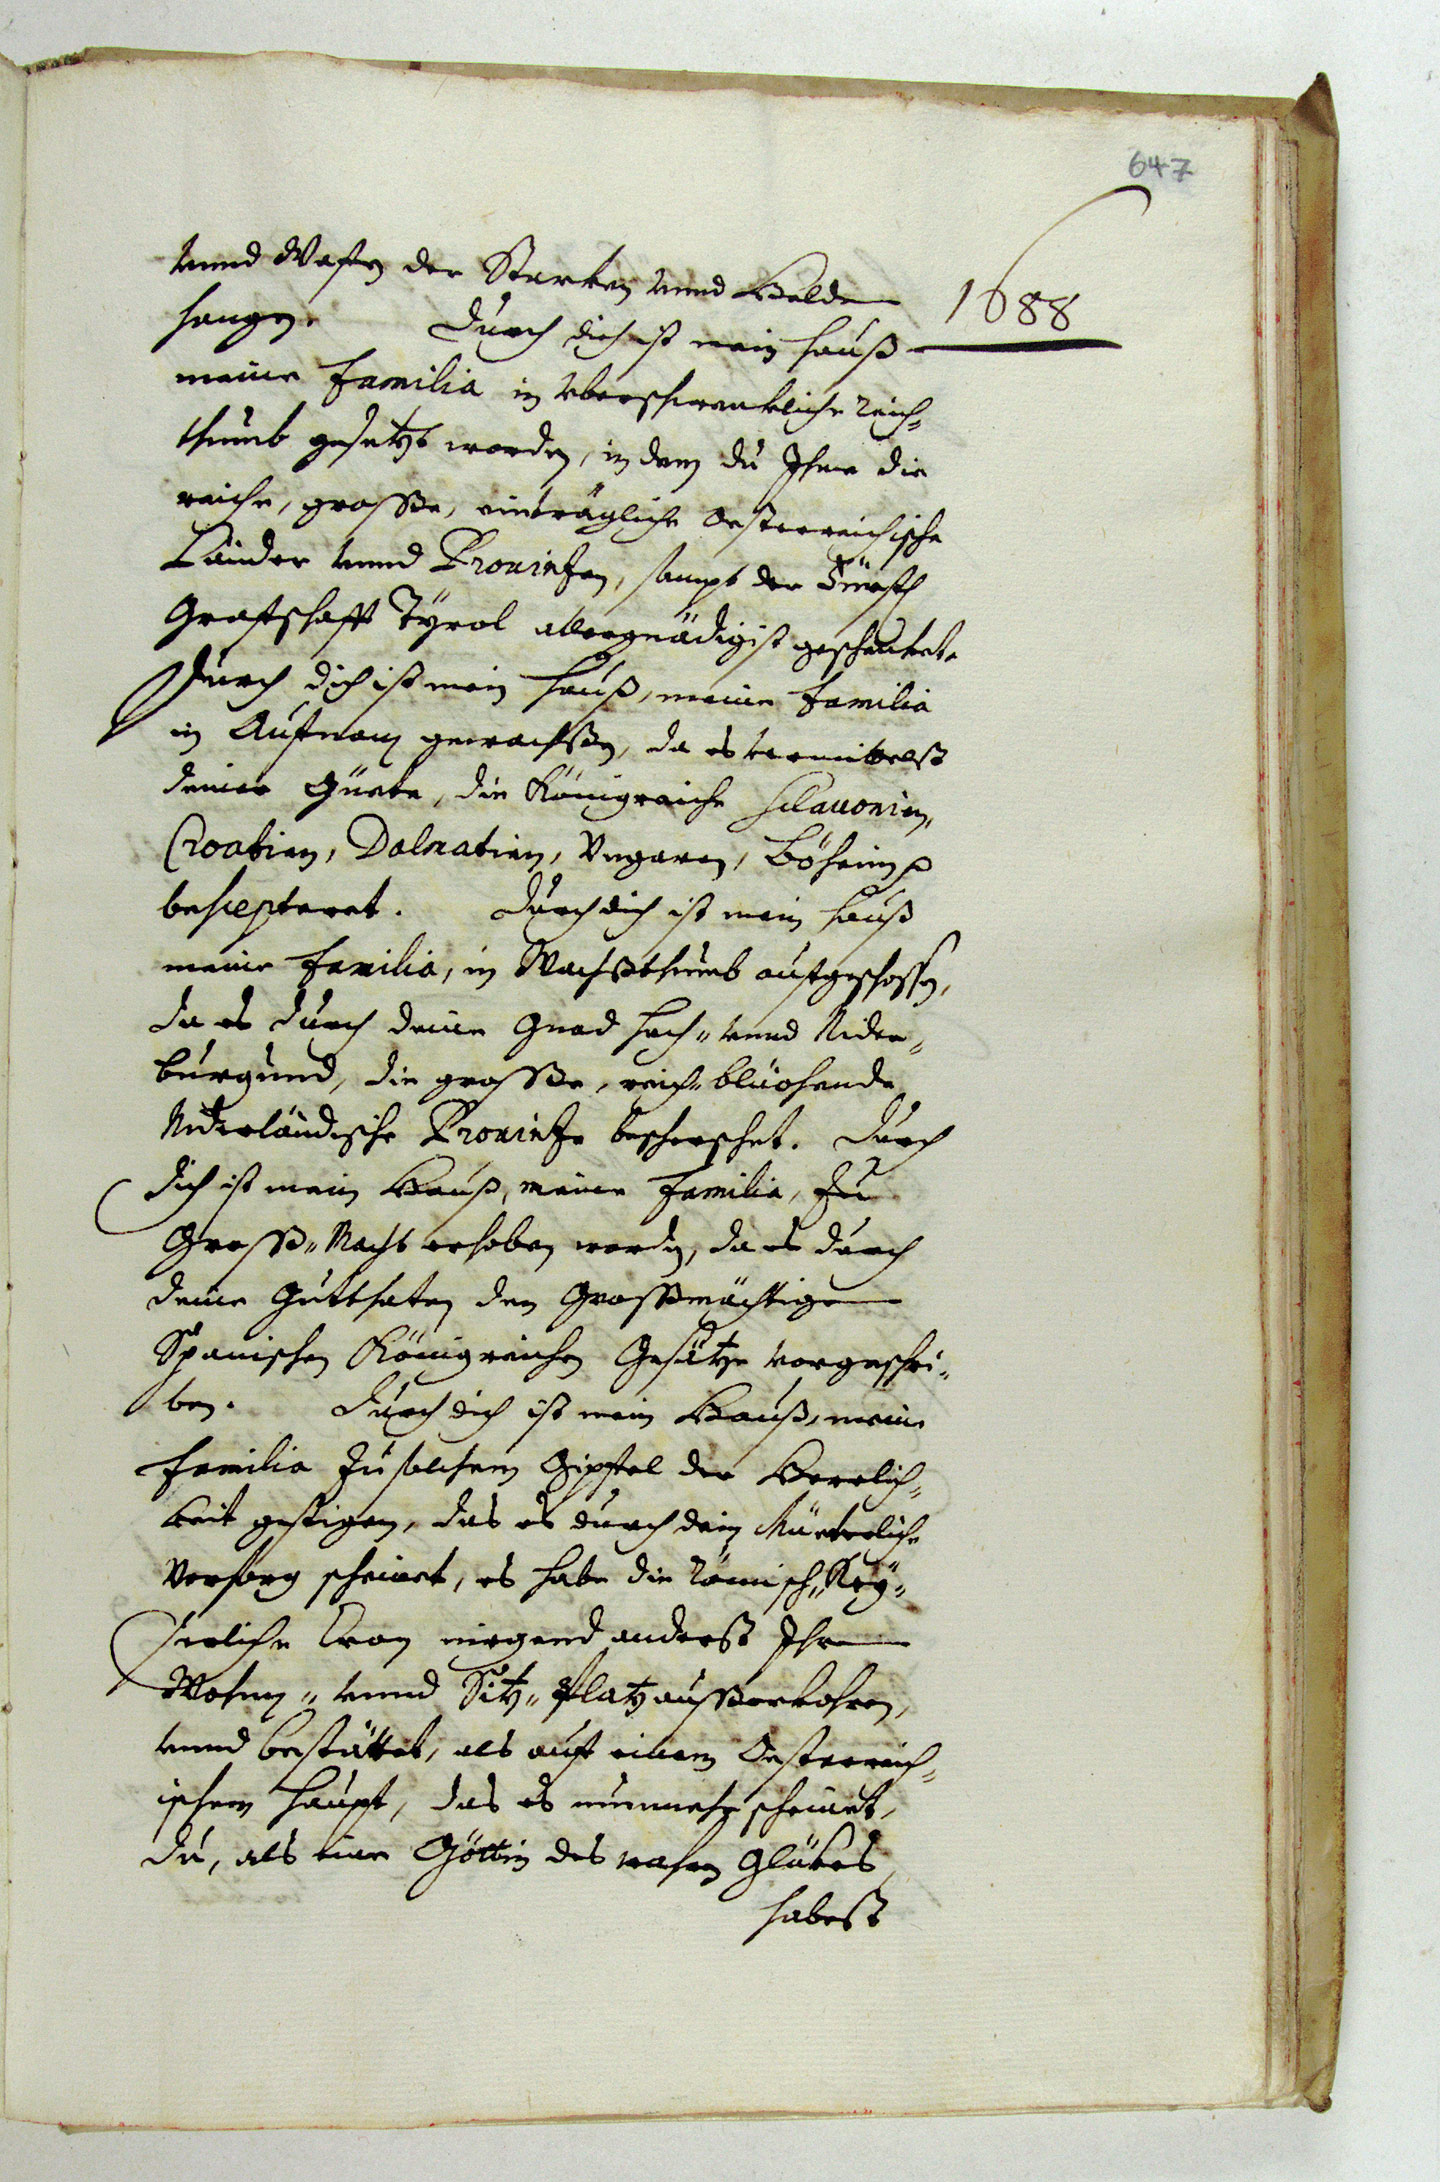 647
1688
vnnd Wafen der Starken vnnd Helden
hangen. Durch dich ist mein Hauß
meine Familia in vberschwenkliche Reich„
thumb gesetzt worden, in dem du Ihme die
reiche, grosse, einträgliche Oesterreichische
Länder vnnd Prouintzen, sampt der Fürstl
Grafschafft Tyrol allergnädigist geschenket.
Durch dich ist mein Hauß, meine Familia
in Aufnam gewachsen, da es vermittelst
deiner Güete, die Königreiche Sclauonien,
Croatien, Dalmatien, Vngaren, Böheim
bescepteret. Durch dich ist mein Hauß
meine Familia, in Wachßthumb aufgeschossen,
da es durch deine Gnad Hoch„ vnnd Nider„
burgund, die grosse, reich„blüohende
Niderländische Prouintze beherschet. Durch
dich ist mein Hauß, meine Familia, zu
Groß„Macht erhoben worden, da es durch
deine Gutthaten den Großmächtigen
Spanischen Königreichen Gesätze vorgeschri„
ben. Durch dich ist mein Hauß, meine
Familia zu solchem Gipfel der Herrlich„
keit gestigen, das es durch dein Müeterliche
Vorsorg scheinet, es habe die Römisch„Key„
serliche Cron nirgend anderst Ihren
Wohn„ vnnd Sitz„Platz außerkohren,
vnnd bestättet, als auf einem Oesterreich„
ischem Haupt, das es nunmehr scheinet,
du, als eine Göttin des wahren Glükes
habest